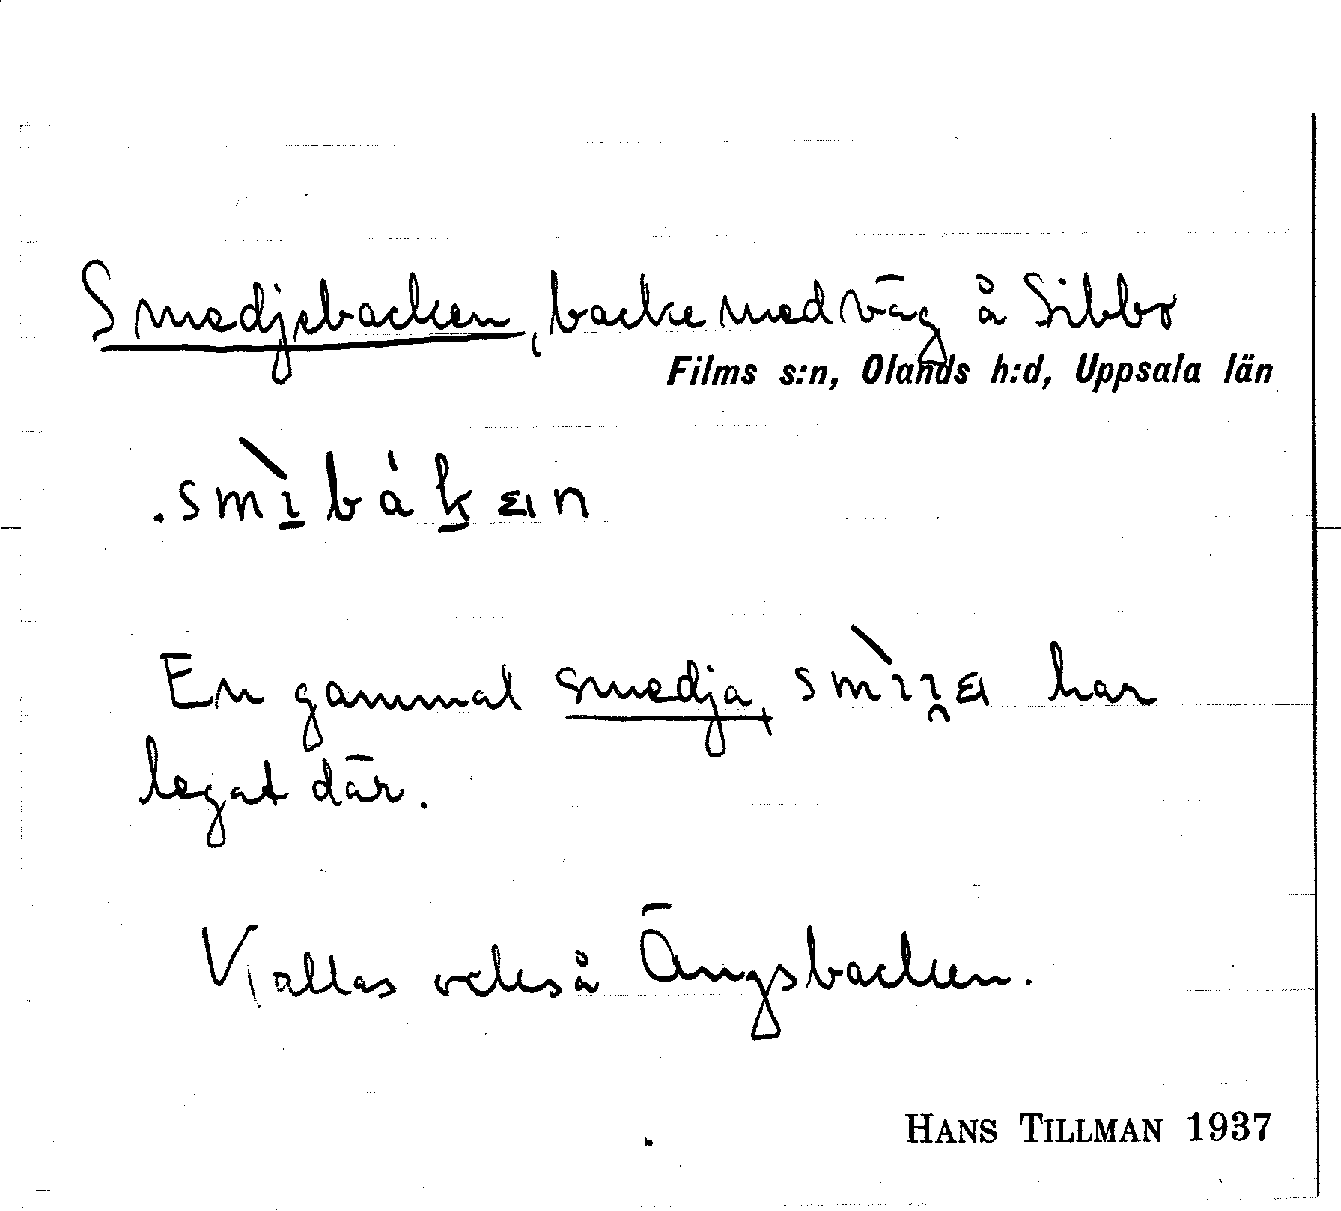 Smedjebacken, backe med väg å Sibbo
Films s:n, Olands h:d, Uppsala län
.smìbák̠ɛn
En gammal smedja, smìi̯a har
legat där.
Kallas också Ängsbacken.
HANS TILLMAN 1937